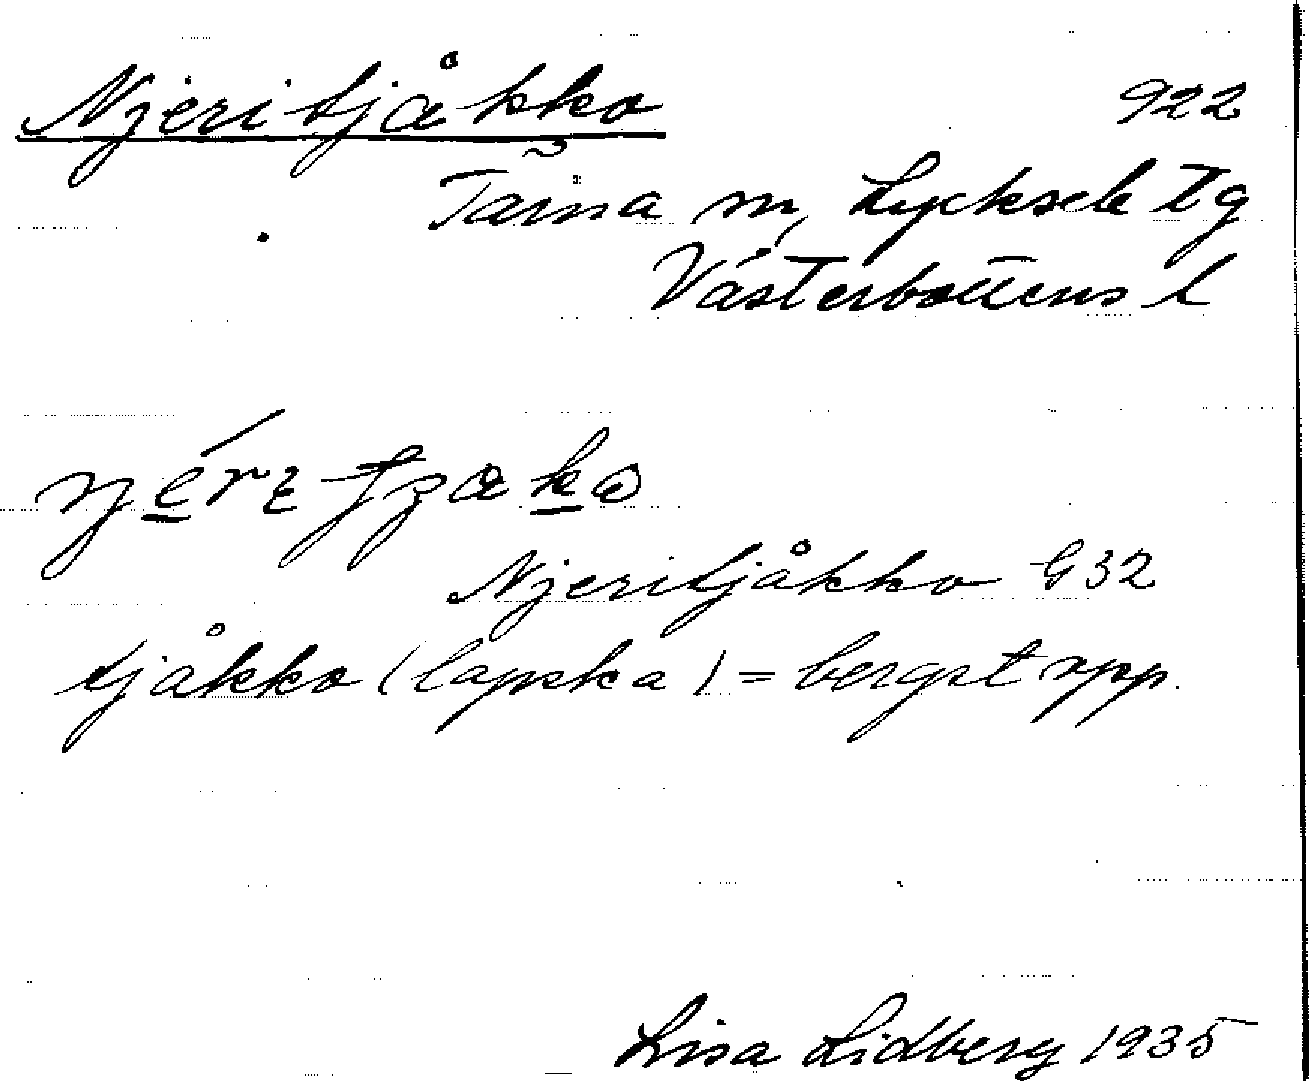 Njeritjåkko 922
Tärna m, Lycksele tg
Västerbottens l
Njeritjåkko G32
tjåkko (lapska) = bergstopp.
Lisa Lidberg 1935